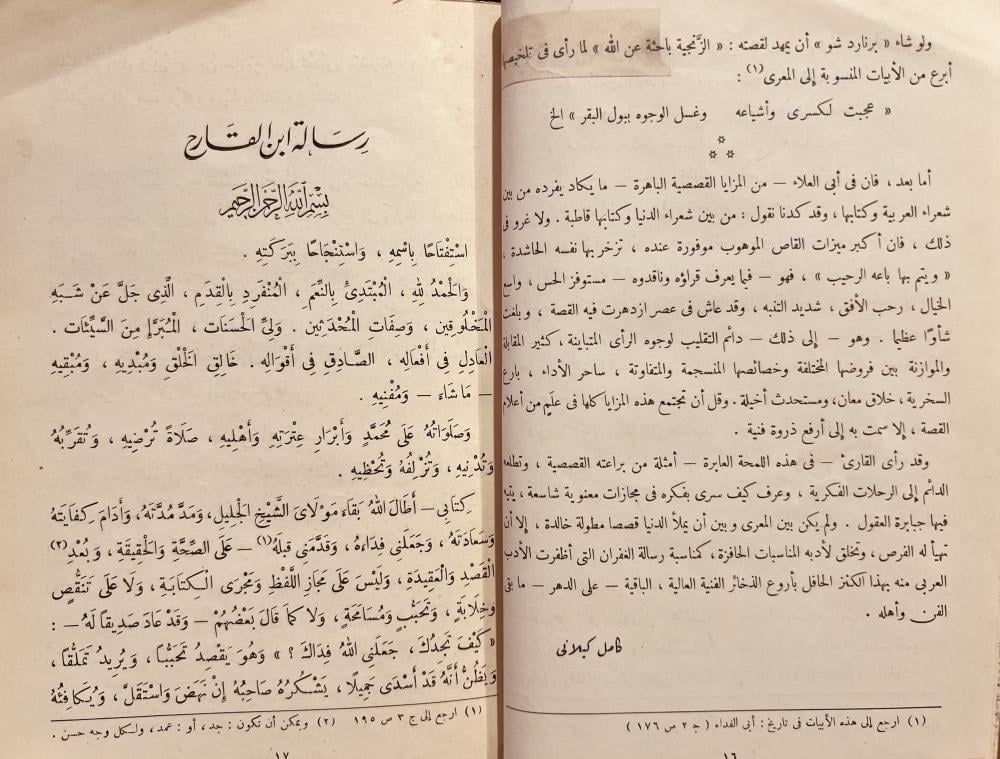 ولو شاء « برنارد شو » أن يمهد لقصته : « الزنجية باحثة عن الله » لما رأى فى تلخيصها
أبرع من الأبيات المنسوبة إلى المعرى(١) :
« عجبت لكسرى وأشياعه وغسل الوجوه ببول البقر » الخ
أما بعد ، فان فى أبى العلاء — من المزايا القصصية الباهرة — ما يكاد يفرده من بين
شعراء العربية وكتابها ، وقد كدنا نقول : من بين شعراء الدنيا وكتابها قاطبة . ولا غرو فى
ذلك ، فان أكبر ميزات القاص الموهوب موفورة عنده ، تزخر بها نفسه الحاشدة ،
« ويتم بها باعه الرحيب » ، فهو — فيما يعرف قراؤه وناقدوه — مستوفز الحس ، واسع
الخيال ، رحب الأفق ، شديد التنبه ، وقد عاش فى عصر ازدهرت فيه القصة ، وبلغت
شأوًا عظيما . وهو — إلى ذلك — دائم التقليب لوجوه الرأى المتباينة ، كثير المقابلة
والموازنة بين فروضها المختلفة وخصائصها المنسجمة والمتفاوتة ، ساحر الأداء ، بارع
السخرية ، خلاق معان، ومستحدث أخيلة . وقل أن تجتمع هذه المزايا كلها فى علَم من أعلام
القصة ، إلا سمت به إلى أرفع ذروة فنية .
وقد رأى القارئ — فى هذه اللمحة العابرة — أمثلة من براعته القصصية ، وتطلعه
الدائم إلى الرحلات الفكرية ، وعرف كيف سرى بفكره فى مجازات معنوية شاسعة ، يتيه
فيها جبابرة العقول . ولم يكن بين المعرى وبين أن يملأ الدنيا قصصا مطولة خالدة ، إلا أن
تهيأ له الفرص ، وتخلق لأدبه المناسبات الحافزة ، كمناسبة رسالة الغفران التى أظفرت الأدب
العربى منه بهذا الكنز الحافل بأروع الذخائر الفنية العالية ، الباقية — على الدهر — ما بقى
الفن وأهله .
كامل كيلانى
(١) ارجع إلى هذه الأبيات فى تاريخ : أبى الفداء ( ج ٢ ص ١٧٦ )
١٦
رسالة ابن القارح
بسم الله الرحمن الرحيم
اسْتِفْتَاحًا بِاسْمِهِ ، وَاسْتِنْجَاحًا بِبَرَكَتِهِ .
وَالْحَمْدُ لِلهِ ، الْمُبْتَدِئُ بِالنِّعَمِ ، الْمُنْفَرِدِ بِالْقِدَمِ ، الَّذِى جَلَّ عَنْ شَبَهِ
الْمَخْلُوقِينَ ، وَصِفَاتِ الْمُحْدَثِينَ . وَلِىِّ الْحَسَنَات ، الْمُبَرَّإِ مِنَ السَّيِّئَات .
الْعَادِلِ فِى أَفْعَالِهِ ، الصَّادِقِ فِى أَقْوَالِهِ . خَالِقِ الْخَلْقِ وَمُبْدِيهِ ، وَمُبْقِيهِ
— مَا شَاءَ — وَمُفْنِيهِ .
وَصَلَوَاتُهُ عَلَى مُحَمَّدٍ وَأَبْرَارِ عِتْرَتِهِ وَأَهْلِيهِ ، صَلَاةً تُرْضِيهِ ، وَتُقَرِّبُهُ
وَتُدْنِيهِ ، وَتُزْلِفُهُ وَتُحْظِيهِ .
كِتَابِى — أَطَالَ اللهُ بَقَاءَ مَوْلَاىَ الشَّيْخِ الْجَلِيلِ، وَمَدَّ مُدَّتَهُ، وَأَدَامَ كِفَايَتَهُ
وَسَعَادَتَهُ ، وَجَعَلَنِى فِدَاءَهُ ، وَقَدَّمَنِى قَبْلَهُ(١) — عَلَى الصِّحَّةِ وَالْحَقِيقَةِ ، وَبُعْدِ(٢)
الْقَصْدِ وَالْعَقِيدَةِ ، وَلَيْسَ عَلَى مَجَازِ اللَّفْظِ وَمَجْرَى الْكِتَابَةِ ، وَلَا عَلَى تَنَقُّصٍ
وَخِلَابَةٍ ، وَتَحَبُّبٍ وَمُسَامَحَةٍ ، وَلَا كَمَا قَالَ بَعْضُهُمْ — وَقَدْ عَادَ صَدِيقًا لَهُ — :
« كَيْفَ تَجِدُكَ ، جَعَلَنِى اللهُ فِدَاكَ ؟ » وَهُوَ يَقْصِدُ تَحَبُّبًا ، وَيُرِيدُ تَمَلُّقًا ،
وَيَظُنُّ أَنَّهُ قَدْ أَسْدَى جَمِيلًا ، يَشْكُرُهُ صَاحِبُهُ إِنْ نَهَضَ وَاسْتَقَلَّ ، وَيُكَافِئُهُ
(١) ارجع إلى ج ٣ ص ١٩٥ (٢) ويمكن أن تكون : جد ، أو : عمد ، ولكل وجه حسن .
١٧